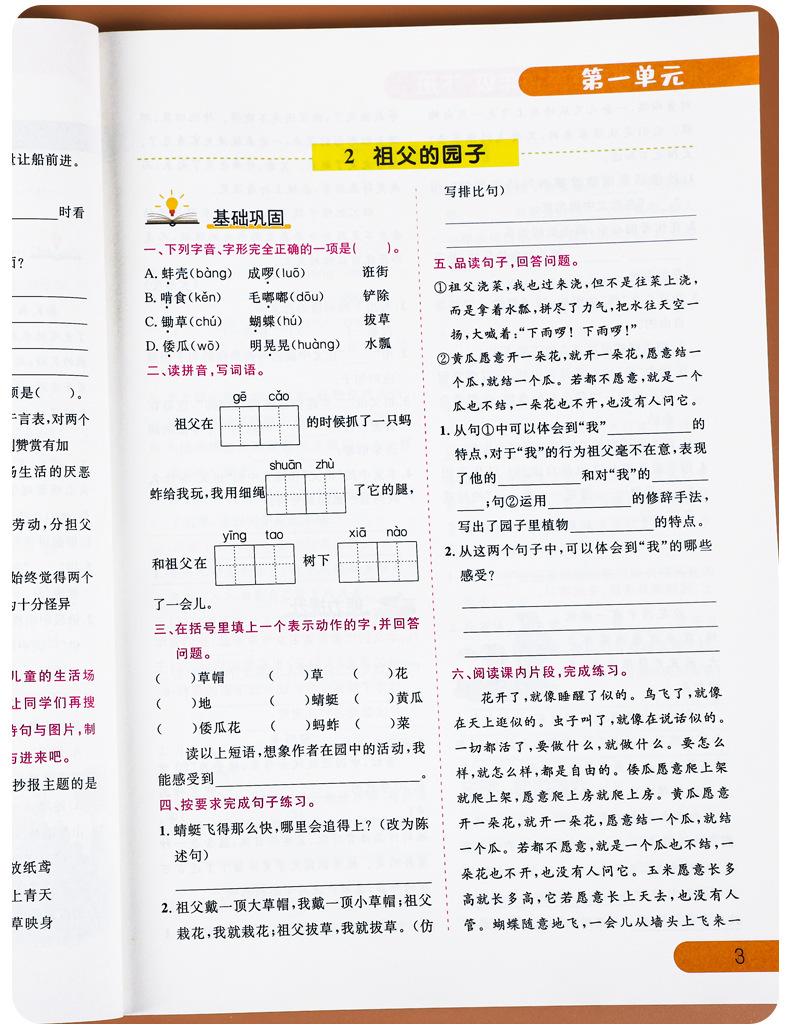 量让船前进。
时看
面?
项是(　　)。
于言表,对两个
赞赏有加
场生活的厌恶
劳动,分担父
始终觉得两个
为十分怪异
儿童的生活场
上同学们再搜
诗句与图片,制
与进来吧。
抄报主题的是
放纸鸢
上青天
草映身
第一单元
2 祖父的园子
基础巩固
一、下列字音、字形完全正确的一项是(　　)。
A. 蚌壳(bàng)　成啰(luō)　诳街
B. 啃食(kěn)　毛嘟嘟(dōu)　铲除
C. 锄草(chú)　蝴蝶(hú)　拔草
D. 倭瓜(wō)　明晃晃(huàng)　水瓢
二、读拼音,写词语。
gē cǎo
祖父在　　的时候抓了一只蚂
shuān zhù
蚱给我玩,我用细绳　　了它的腿,
yīng tao　xiā nào
和祖父在　　树下
了一会儿。
三、在括号里填上一个表示动作的字,并回答
问题。
(　　)草帽　(　　)草　(　　)花
(　　)地　(　　)蜻蜓　(　　)黄瓜
(　　)倭瓜花　(　　)蚂蚱　(　　)菜
读以上短语,想象作者在园中的活动,我
能感受到　　。
四、按要求完成句子练习。
1. 蜻蜓飞得那么快,哪里会追得上?(改为陈
述句)
2. 祖父戴一顶大草帽,我戴一顶小草帽;祖父
栽花,我就栽花;祖父拔草,我就拔草。(仿
写排比句)
五、品读句子,回答问题。
①祖父浇菜,我也过来浇,但不是往菜上浇,
而是拿着水瓢,拼尽了力气,把水往天空一
扬,大喊着:“下雨啰!下雨啰!”
②黄瓜愿意开一朵花,就开一朵花,愿意结一
个瓜,就结一个瓜。若都不愿意,就是一个
瓜也不结,一朵花也不开,也没有人问它。
1. 从句①中可以体会到“我”　　的
特点,对于“我”的行为祖父毫不在意,表现
了他的　　和对“我”的
;句②运用　　的修辞手法,
写出了园子里植物　　的特点。
2. 从这两个句子中,可以体会到“我”的哪些
感受?
六、阅读课内片段,完成练习。
花开了,就像睡醒了似的。鸟飞了,就像
在天上逛似的。虫子叫了,就像在说话似的。
一切都活了,要做什么,就做什么。要怎么
样,就怎么样,都是自由的。倭瓜愿意爬上架
就爬上架,愿意爬上房就爬上房。黄瓜愿意
开一朵花,就开一朵花,愿意结一个瓜,就结
一个瓜。若都不愿意,就是一个瓜也不结,一
朵花也不开,也没有人问它。玉米愿意长多
高就长多高,它若愿意长上天去,也没有人
管。蝴蝶随意地飞,一会儿从墙头上飞来一
3